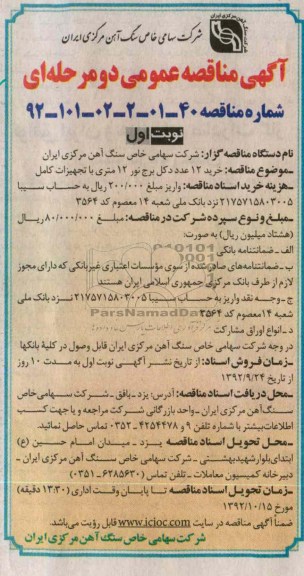 شرکت سهامی خاص سنگ آهن مرکزی ایران
آگهی مناقصه عمومی دو مرحله‌ای
شماره مناقصه ۴۰-۰۱-۲-۰۲-۱۰۱-۹۲
نوبت اول
نام دستگاه مناقصه گزار: شرکت سهامی خاص سنگ آهن مرکزی ایران
-موضوع مناقصه: خرید ۱۲ عدد دکل برج نور ۱۲ متری با تجهیزات کامل
-هزینه خرید اسناد مناقصه: واریز مبلغ ۲۰۰/۰۰۰ ریال به حساب سیبا
۲۱۷۵۷۱۵۸۰۳۰۰۵ نزد بانک ملی شعبه ۱۴ معصوم کد ۳۵۶۴
-مبلغ و نوع سپرده شرکت در مناقصه: مبلغ ۸۰/۰۰۰/۰۰۰ ریال
(هشتاد میلیون ریال) به صورت:
الف - ضمانتنامه بانکی
ب - ضمانتنامه‌های صادر شده از سوی مؤسسات اعتباری غیربانکی که دارای مجوز
لازم از طرف بانک مرکزی جمهوری اسلامی ایران هستند
ج - وجه نقد واریز به حساب سیبا ۲۱۷۵۷۱۵۸۰۳۰۰۵ نزد بانک ملی
شعبه ۱۴ معصوم کد ۳۵۶۴
د - انواع اوراق مشارکت
در وجه شرکت سهامی خاص سنگ آهن مرکزی ایران قابل وصول در کلیهٔ بانکها
-زمان فروش اسناد: از تاریخ نشر آگهی نوبت اول به مدت ۱۰ روز از
تاریخ ۱۳۹۲/۹/۲۴
-محل دریافت اسناد مناقصه: آدرس: یزد - بافق - شرکت سهامی خاص
سنگ آهن مرکزی ایران - واحد بازرگانی شرکت مراجعه و یا جهت کسب
اطلاعات بیشتر با شماره تلفن ۹ و ۴۲۵۴۴۷۸-۰۳۵۲ تماس حاصل نمائید.
-محل تحویل اسناد مناقصه یزد - میدان امام حسین (ع)
ابتدای بلوار شهید بهشتی - شرکت سهامی خاص سنگ آهن مرکزی ایران -
دبیرخانه کمیسیون معاملات - تلفن تماس (۶۲۸۵۶۳۰-۰۳۵۱)
-زمان تحویل اسناد مناقصه تا پایان وقت اداری (۱۳:۳۰ دقیقه)
مورخ ۱۳۹۲/۱۰/۱۵
ضمناً آگهی مناقصه در سایت www.icioc.com قابل رؤیت می‌باشد.
شرکت سهامی خاص سنگ آهن مرکزی ایران